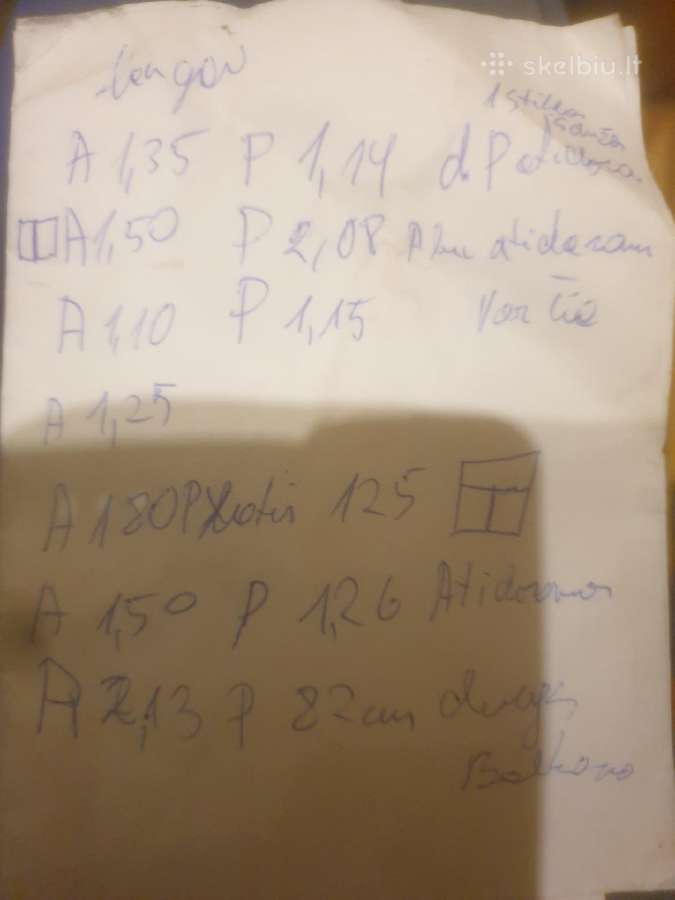 skelbiu.lt
Langai
1 stiklo
A 1,35 P 1,14
A 1,50 P 2,08 Abu atidaromi
A 1,10 P 1,15 Varčia
A 1,25
A 180 Plotis 125
A 1,50 P 1,26 Atidaromas
A 2,13 P 82 cm durys
Balkono